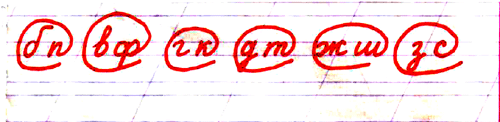 бп вф гк дт жш зс